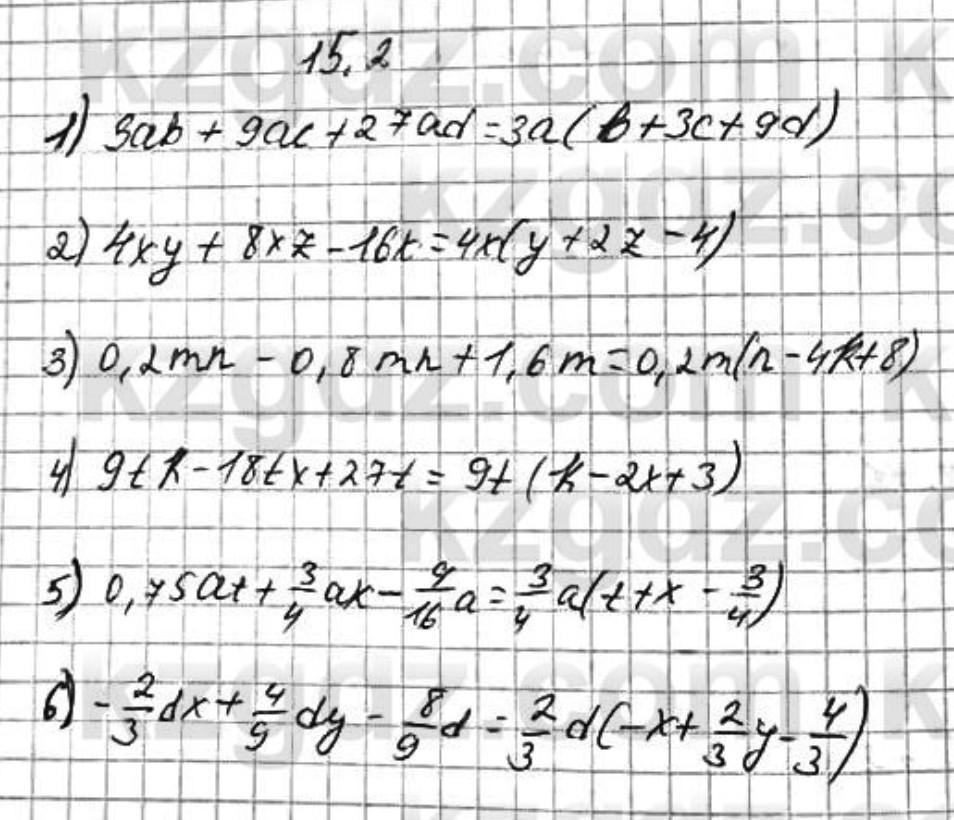 15.2
1) 3ab + 9ac + 27ad = 3a(b + 3c + 9d)
2) 4xy + 8xz - 16x = 4x(y + 2z - 4)
3) 0,2mn - 0,8mn + 1,6m = 0,2m(n - 4k + 8)
4) 9tk - 18tx + 27t = 9t(k - 2x + 3)
5) 0,75at + 3/4 ax - 9/16 a = 3/4 a(t + x - 3/4)
6) - 2/3 dx + 4/9 dy - 8/9 d = 2/3 d(-x + 2/3 y - 4/3)
kzgdz.com